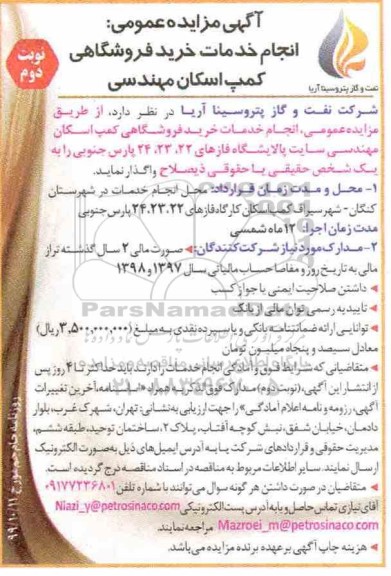 آگهی مزایده عمومی:
انجام خدمات خرید فروشگاهی
کمپ اسکان مهندسی
نوبت
دوم
نفت و گاز پتروسینا آریا
شرکت نفت و گاز پتروسینا آریا در نظر دارد، از طریق
مزایده عمومی، انجام خدمات خرید فروشگاهی کمپ اسکان
مهندسی سایت پالایشگاه فازهای ۲۲، ۲۳، ۲۴ پارس جنوبی را به
یک شخص حقیقی یا حقوقی ذیصلاح واگذار نماید.
۱- محل و مدت زمان قرارداد: محل انجام خدمات در شهرستان
کنگان - شهر سیراف کمپ اسکان کارگاه فازهای ۲۴،۲۳،۲۲ پارس جنوبی
مدت زمان اجرا: ۱۲ ماه شمسی
۲- مدارک مورد نیاز شرکت کنندگان: صورت مالی ۲ سال گذشته تراز
مالی به تاریخ روز و مفاصا حساب مالیاتی سال ۱۳۹۷ و ۱۳۹۸
داشتن صلاحیت ایمنی یا جواز کسب
تأییدیه رسمی توان مالی از بانک
توانایی ارائه ضمانتنامه بانکی و یا سپرده نقدی به مبلغ (۳,۵۰۰,۰۰۰,۰۰۰ ریال)
معادل سیصد و پنجاه میلیون تومان
متقاضیانی که شرایط فوق و آمادگی انجام خدمات را دارند، باید حداکثر تا ۴ روز پس
از انتشار این آگهی، (نوبت دوم) مدارک فوق الذکر به همراه اساسنامه، آخرین تغییرات
آگهی، رزومه و نامه اعلام آمادگی را جهت ارزیابی به نشانی: تهران، شهرک غرب، بلوار
دادمان، خیابان شفق، نبش کوچه آفتاب، پلاک ۲، ساختمان توحید، طبقه ششم،
مدیریت حقوقی و قراردادهای شرکت یا به آدرس ایمیل‌های ذیل به صورت الکترونیک
ارسال نمایند. سایر اطلاعات مربوط به مناقصه در اسناد مناقصه درج گردیده است.
متقاضیان در صورت داشتن هر گونه سوال می توانند با شماره تلفن ۰۹۱۷۷۲۳۶۸۰۱
آقای نیازی تماس حاصل و یا به آدرس پست الکترونیکی Niazi_y@petrosinaco.com
Mazroei_m@petrosinaco.com مراجعه نمایند.
هزینه چاپ آگهی بر عهده برنده مزایده می باشد.
روزنامه جام جم مورخ ۹۹/۱۰/۱۱
ParsNamadData